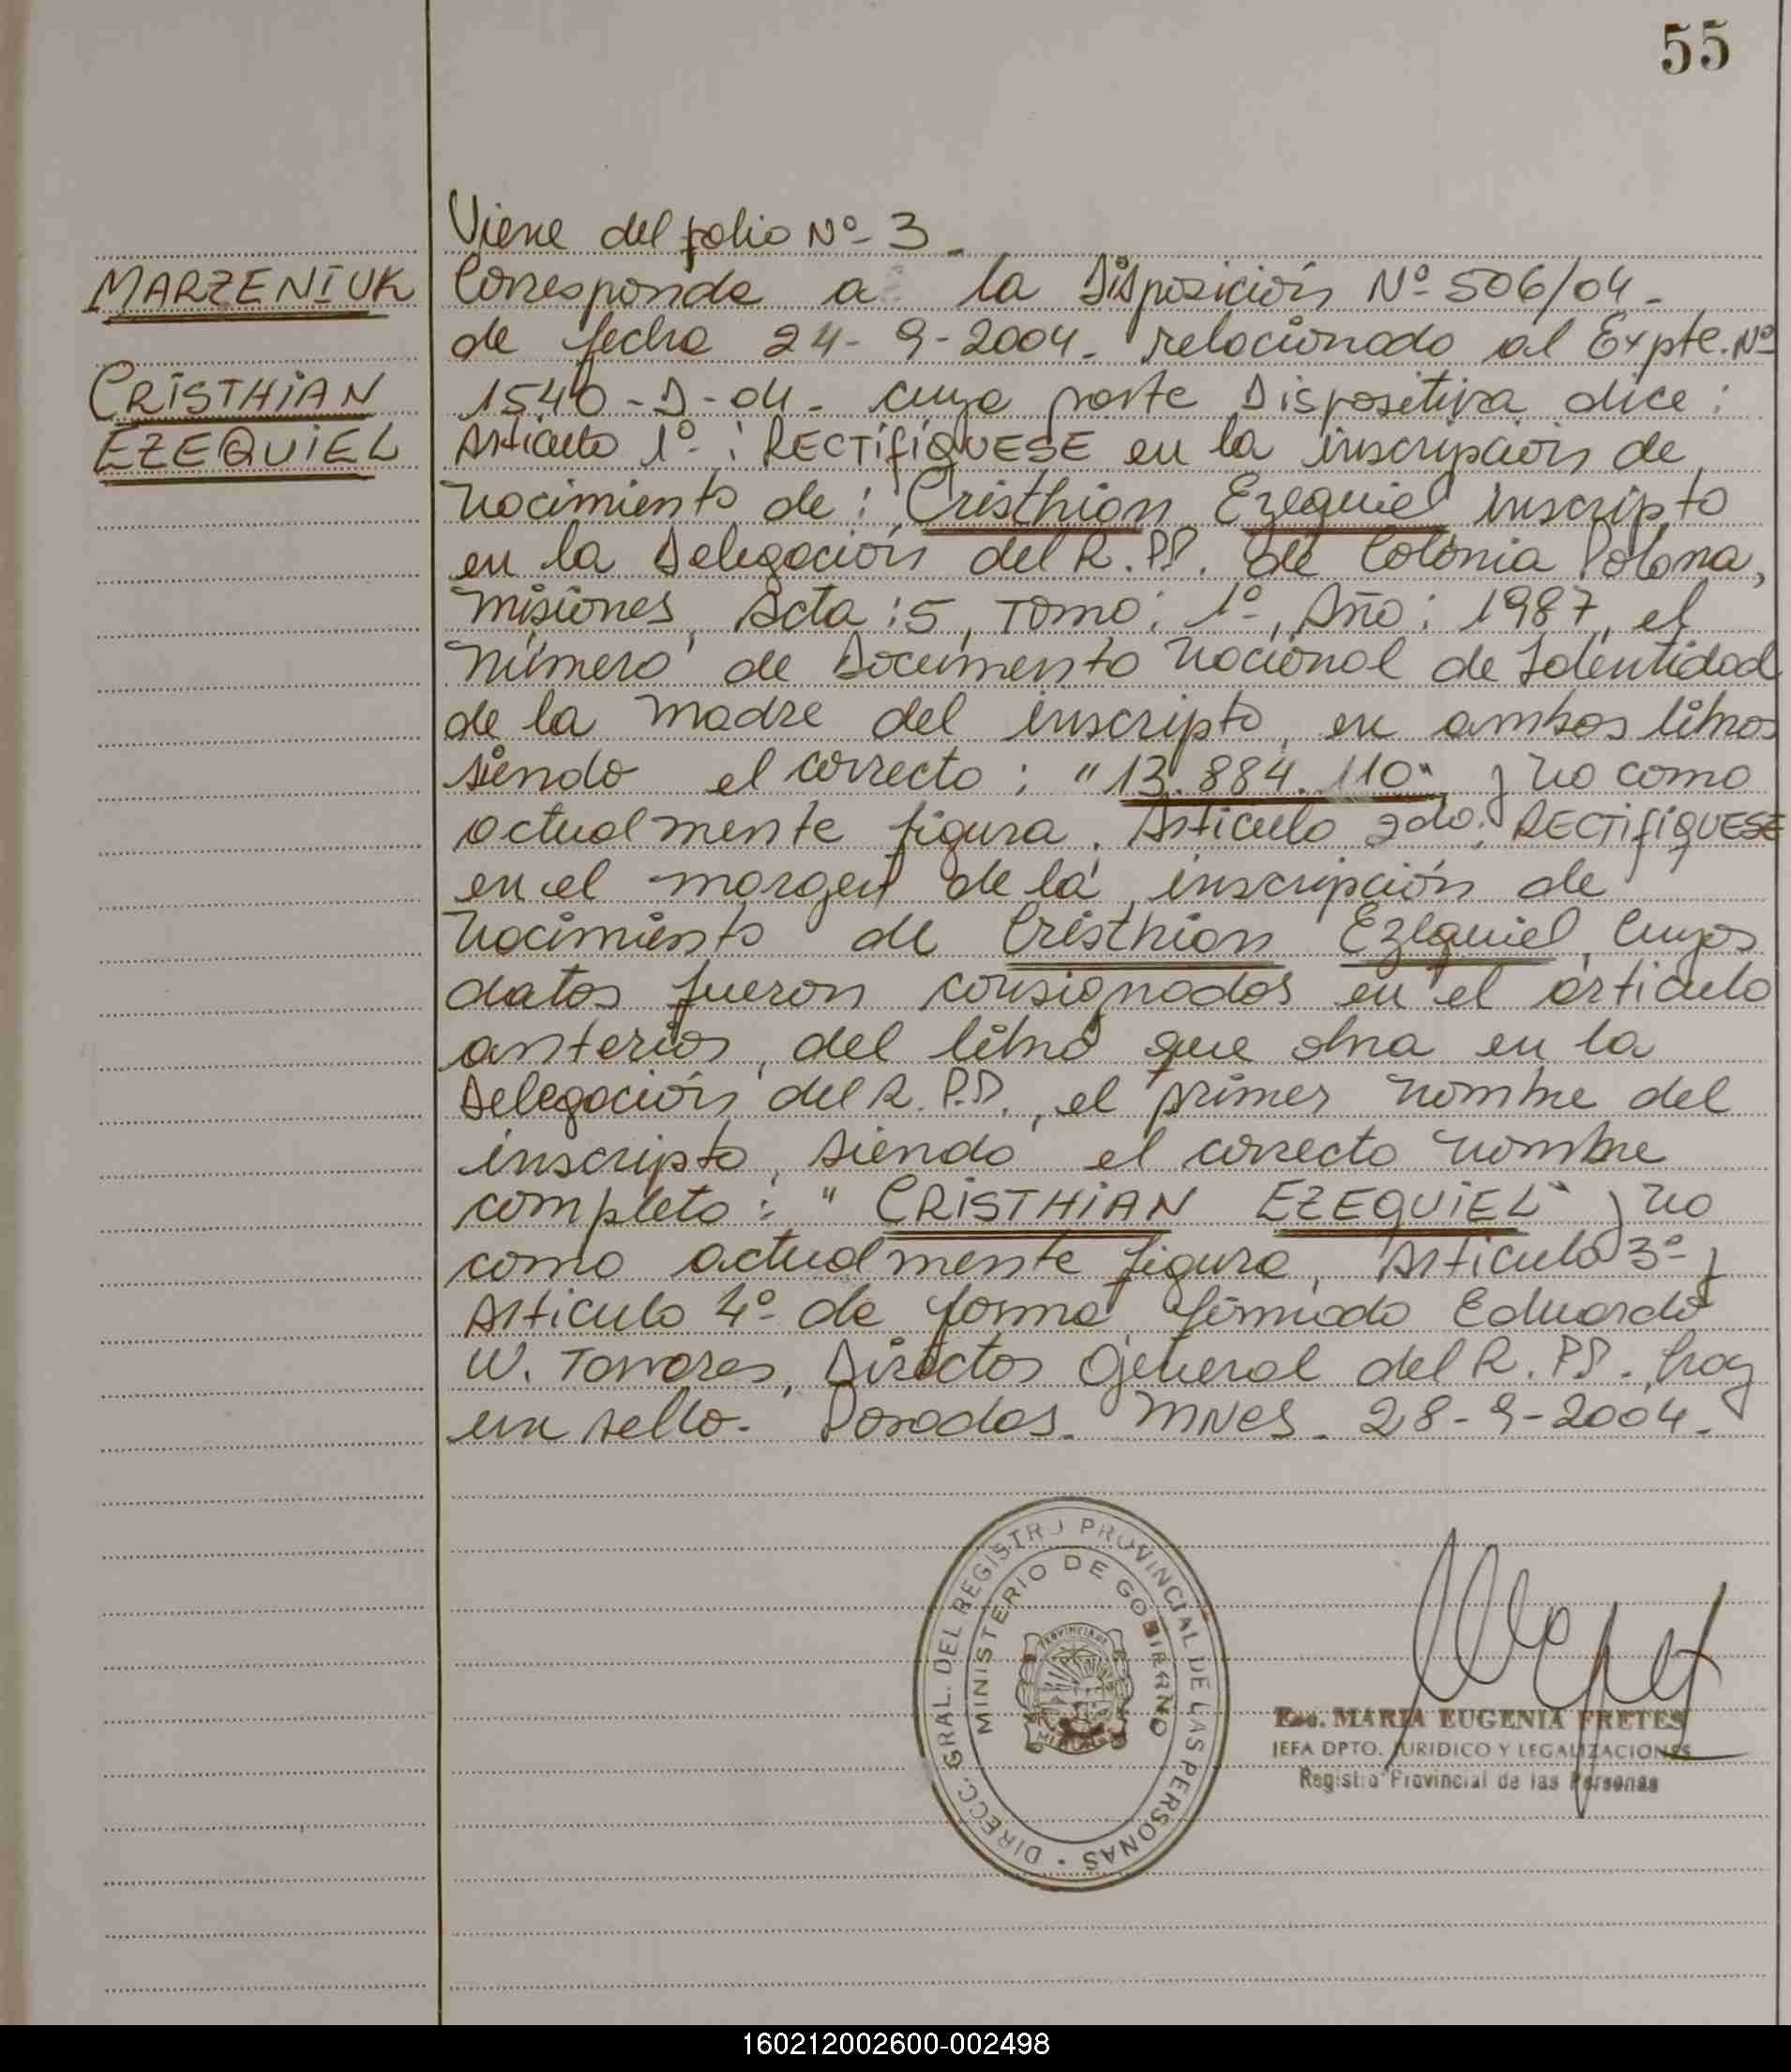 55
Viene del folio Nº 3.
MARZENIUK
Corresponde a la Disposición Nº 506/04-
de fecha 24-9-2004. relacionado al Expte. Nº
CRISTHIAN
1540-D-04. cuya parte Dispositiva dice:
EZEQUIEL
Articulo 1º: RECTIFIQUESE en la inscripción de
nacimiento de: Cristhian Ezequiel inscripto
en la Delegación del R.PP. de Colonia Polana,
Misiones, Acta: 5, Tomo: 1º, Año: 1987, el
número de Documento Nacional de Identidad
de la madre del inscripto, en ambos libros
siendo el correcto: "13.884.110" y no como
actualmente figura. Articulo 2do: RECTIFIQUESE
en el margen de la inscripción de
nacimiento de Cristhian Ezequiel cuyos
datos fueron consignados en el articulo
anterior, del libro que obra en la
Delegación del R.P.P., el primer nombre del
inscripto, siendo el correcto nombre
completo: "CRISTHIAN EZEQUIEL" y no
como actualmente figura, Articulo 3º y
Articulo 4º de forma firmado Eduardo
W. Torrares, Director General del R.PP., hay
un sello. Posadas. Mnes. 28-9-2004.
DIRECC. GRAL. DEL REGISTRO PROVINCIAL DE LAS PERSONAS
MINISTERIO DE GOBIERNO
Esc. MARIA EUGENIA FRETES
JEFA DPTO. JURIDICO Y LEGALIZACIONES
Registro Provincial de las Personas
160212002600-002498